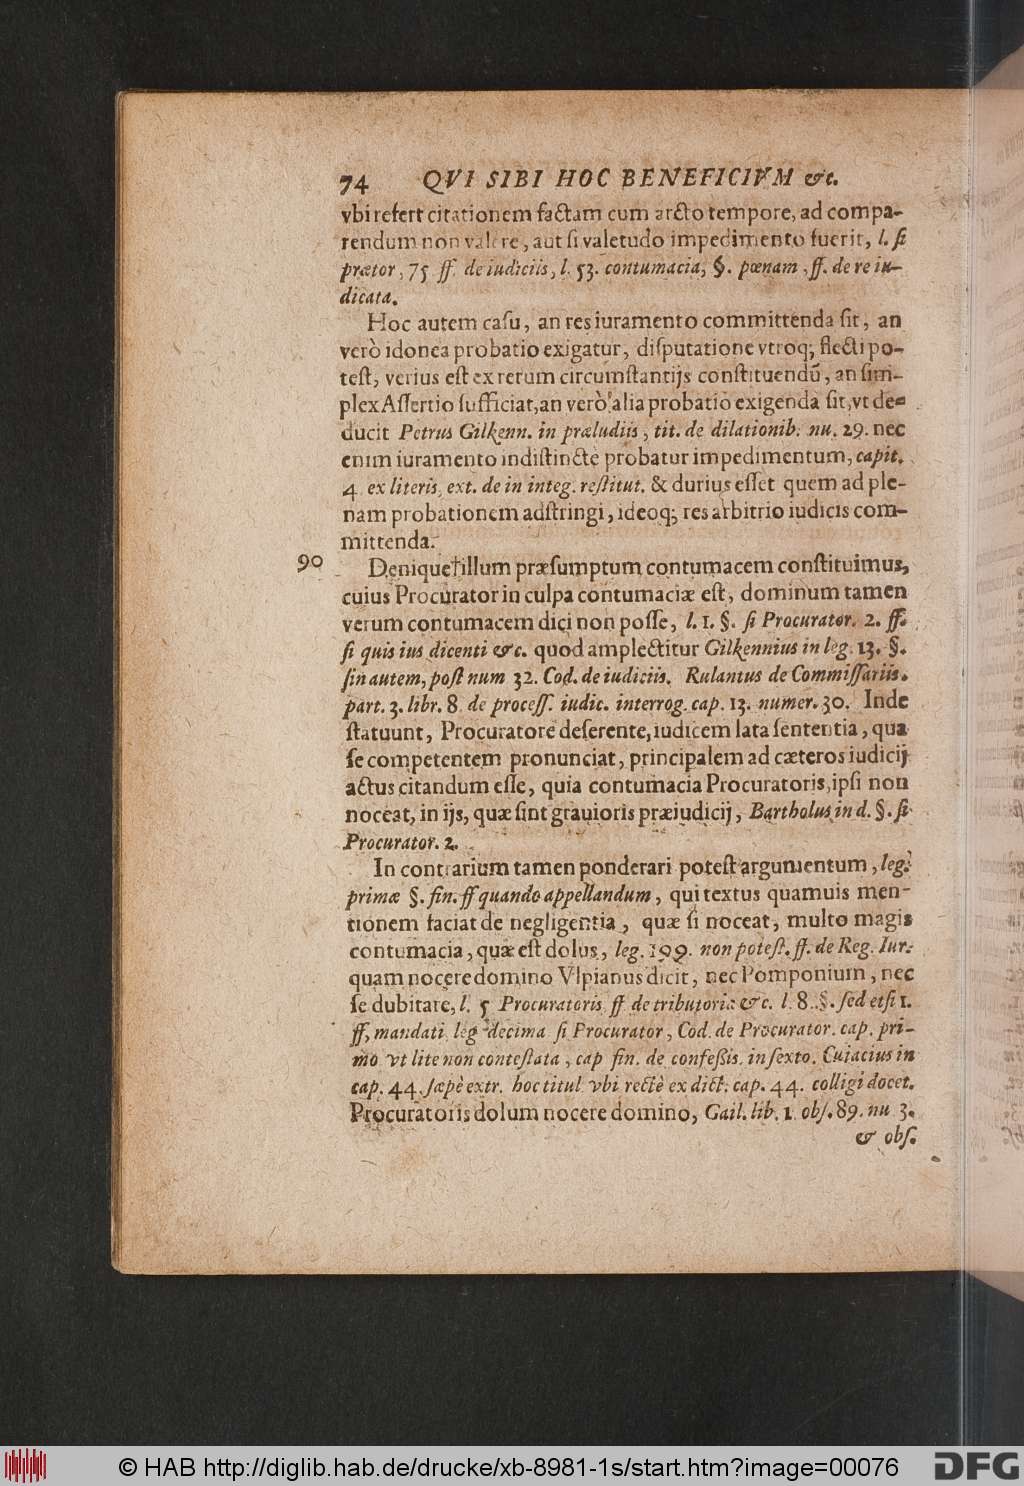 74 QVI SIBI HOC BENEFICIVM &c.
vbi refert citationem factam cum arcto tempore, ad compa-
rendum non valere, aut ſi valetudo impedimento fuerit, l. ſi
prætor, 75 ff. de iudiciis, l. 53. contumacia, §. pœnam, ff. de re iu-
dicata.
Hoc autem caſu, an res iuramento committenda ſit, an
verò idonea probatio exigatur, diſputatione vtroq; flecti po-
teſt, verius eſt ex rerum circumſtantijs conſtituendũ, an ſim-
plex Aſſertio ſufficiat, an verò alia probatio exigenda ſit, vt de-
ducit Petrus Gilkenn. in præludiis, tit. de dilationib. nu. 29. nec
enim iuramento indiſtincte probatur impedimentum, capit.
4. ex literis, ext. de in integ. reſtitut. & durius eſſet quem ad ple-
nam probationem adſtringi, ideoq; res arbitrio iudicis com-
mittenda.
90 Denique † illum præſumptum contumacem conſtituimus,
cuius Procurator in culpa contumaciæ eſt, dominum tamen
verum contumacem dici non poſſe, l. 1. §. ſi Procurator. 2. ff.
ſi quis ius dicenti &c. quod amplectitur Gilkennius in leg. 13. §.
ſin autem, poſt num 32. Cod. de iudiciis. Rulantus de Commiſſariis.
part. 3. libr. 8. de proceſſ. iudic. interrog. cap. 13. numer. 30. Inde
ſtatuunt, Procuratore deſerente, iudicem lata ſententia, qua
ſe competentem pronunciat, principalem ad cæteros iudicij
actus citandum eſſe, quia contumacia Procuratoris, ipſi non
noceat, in ijs, quæ ſint grauioris præiudicij, Bartholus in d. §. ſi
Procurator. 2.
In contrarium tamen ponderari poteſt argumentum, leg.
primæ §. fin. ff quando appellandum, qui textus quamuis men-
tionem faciat de negligentia, quæ ſi noceat, multo magis
contumacia, quæ eſt dolus, leg. 199. non poteſt. ff. de Reg. Iur.
quam nocere domino Vlpianus dicit, nec Pomponium, nec
ſe dubitare, l. 5 Procuratoris ff de tributoria &c. l. 8. §. ſed etſi 1.
ff. mandati. leg decima ſi Procurator, Cod. de Procurator. cap. pri-
mo vt lite non conteſtata, cap fin. de confeſsis. in ſexto. Cuiacius in
cap. 44. ſæpè extr. hoc titul vbi rectè ex dict. cap. 44. colligi docet.
Procuratoris dolum nocere domino, Gail. lib. 1. obſ. 89. nu 3.
& obſ.
© HAB http://diglib.hab.de/drucke/xb-8981-1s/start.htm?image=00076 DFG